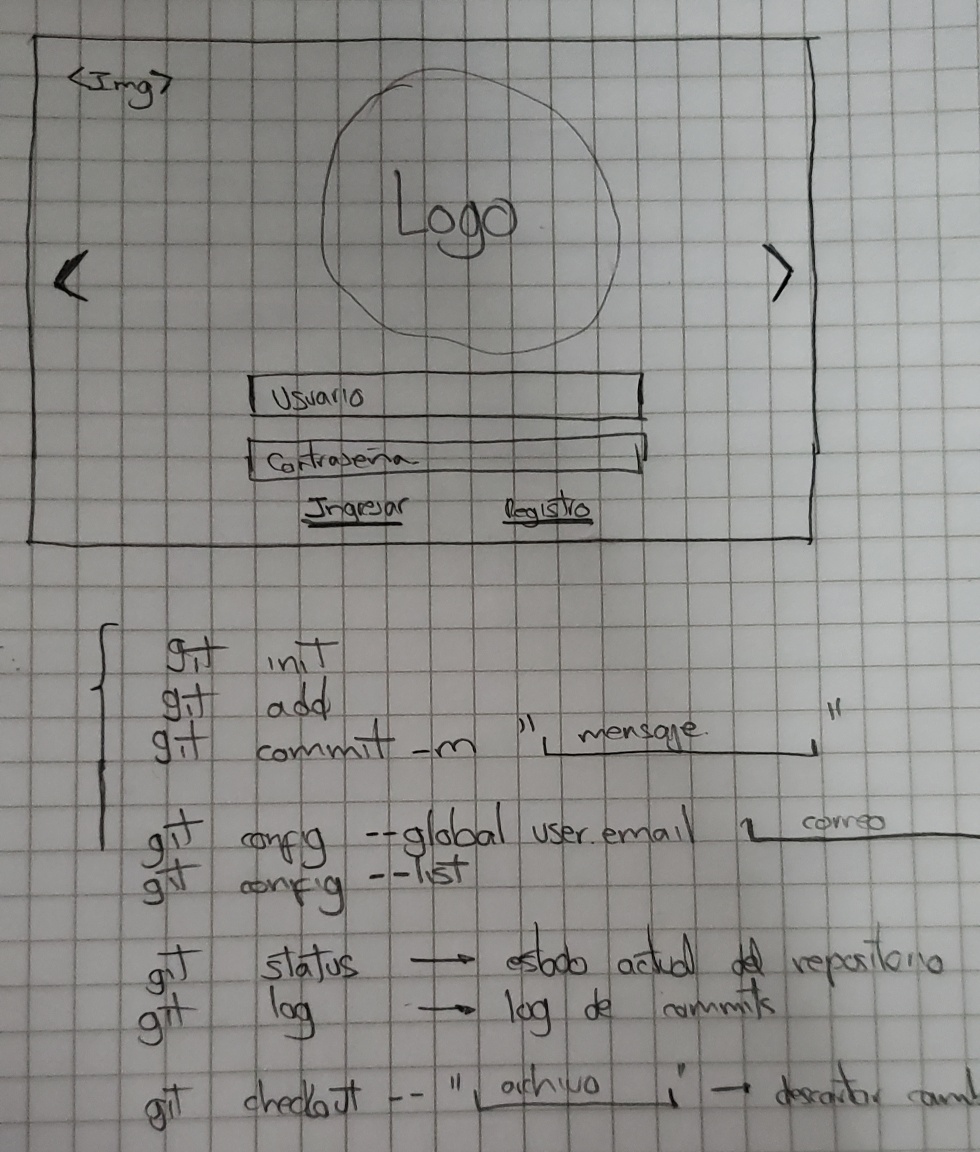 <Img>
Logo
< >
Usuario
Contraseña
Ingresar Registro
git init
git add
git commit -m "mensaje"
git config --global user.email correo
git config --list
git status → estado actual del repositorio
git log → log de commits
git checkout -- "archivo" → descartar